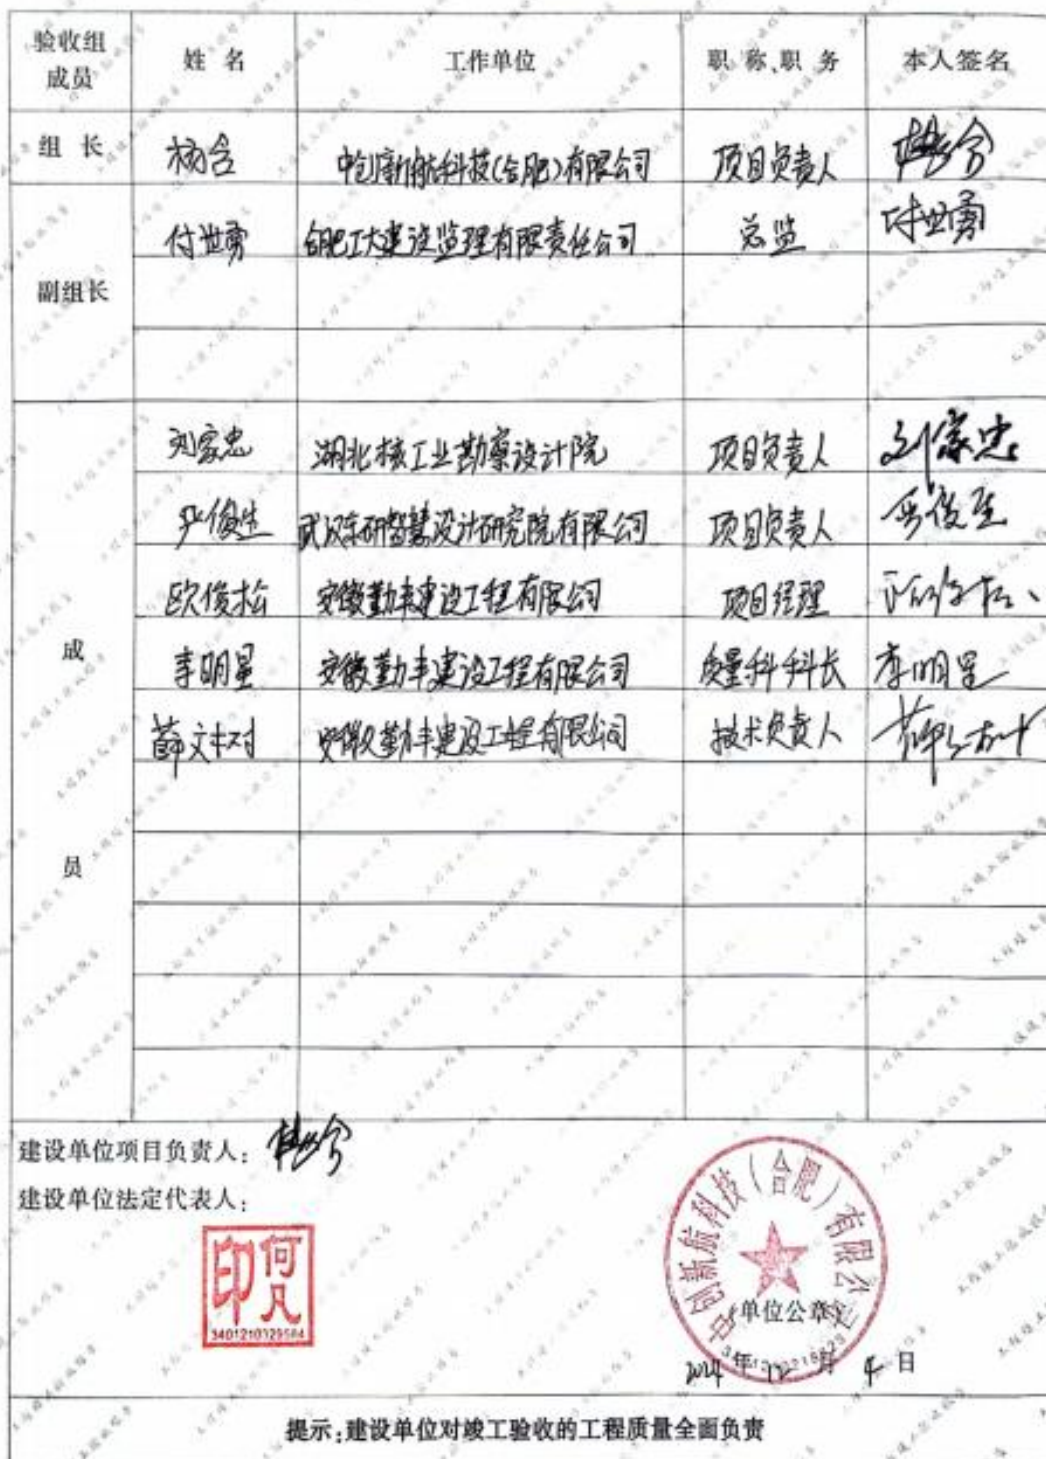 验收组成员 姓 名 工作单位 职 称、职 务 本人签名
组 长 杨含 中创新航科技(合肥)有限公司 项目负责人 杨含
副组长 付世勇 合肥工大建设监理有限责任公司 总监 付世勇
成员 刘家忠 湖北核工业勘察设计院 项目负责人 刘家忠
严俊生 武汉东研智慧设计研究院有限公司 项目负责人 严俊生
欧俊松 安徽勤丰建设工程有限公司 项目经理
李明星 安徽勤丰建设工程有限公司 质量科科长 李明星
薛文树 安徽勤丰建设工程有限公司 技术负责人 薛文树
建设单位项目负责人: 杨含
建设单位法定代表人:
何凡印
3401210329584
中创新航科技(合肥)有限公司
(单位公章)
2024 年 12 月 4 日
提示:建设单位对竣工验收的工程质量全面负责